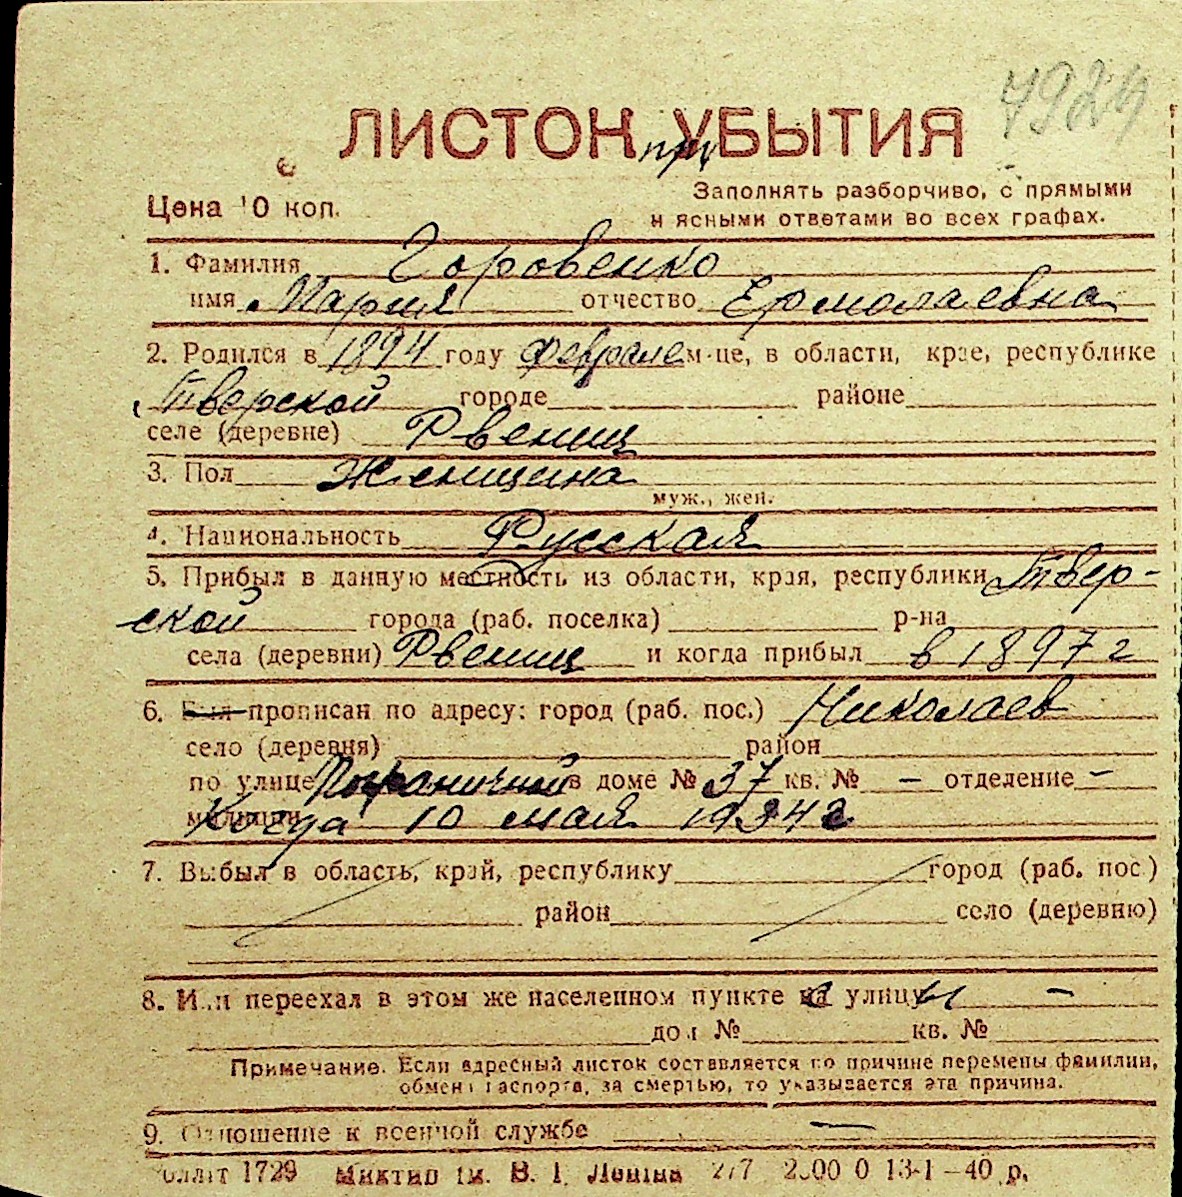 7924
ЛИСТОК УБЫТИЯ
при
Цена 10 коп.
Заполнять разборчиво, с прямыми
и ясными ответами во всех графах.
1. Фамилия Горовенко
имя Мария отчество Ермолаевна
2. Родился в 1894 году феврале м-це, в области, крае, республике
Тверской городе районе
селе (деревне) Рвениц
3. Пол Женщина
муж., жен.
4. Национальность Русская
5. Прибыл в данную местность из области, края, республики Твер-
ской города (раб. поселка) р-на
села (деревни) Рвениц и когда прибыл в 1897 г
6. Был прописан по адресу: город (раб. пос.) Николаев
село (деревня) район
по улице Пограничной в доме № 37 кв. № – отделение –
милиции Когда 10 мая 1934 г
7. Выбыл в область, край, республику город (раб. пос.)
район село (деревню)
8. Или переехал в этом же населенном пункте на улицу –
дом № кв. №
Примечание. Если адресный листок составляется по причине перемены фамилии,
обмена паспорта, за смертью, то указывается эта причина.
9. Отношение к военной службе –
1729 им. В. І. Леніна 277 2000 0 13-1–40 р.